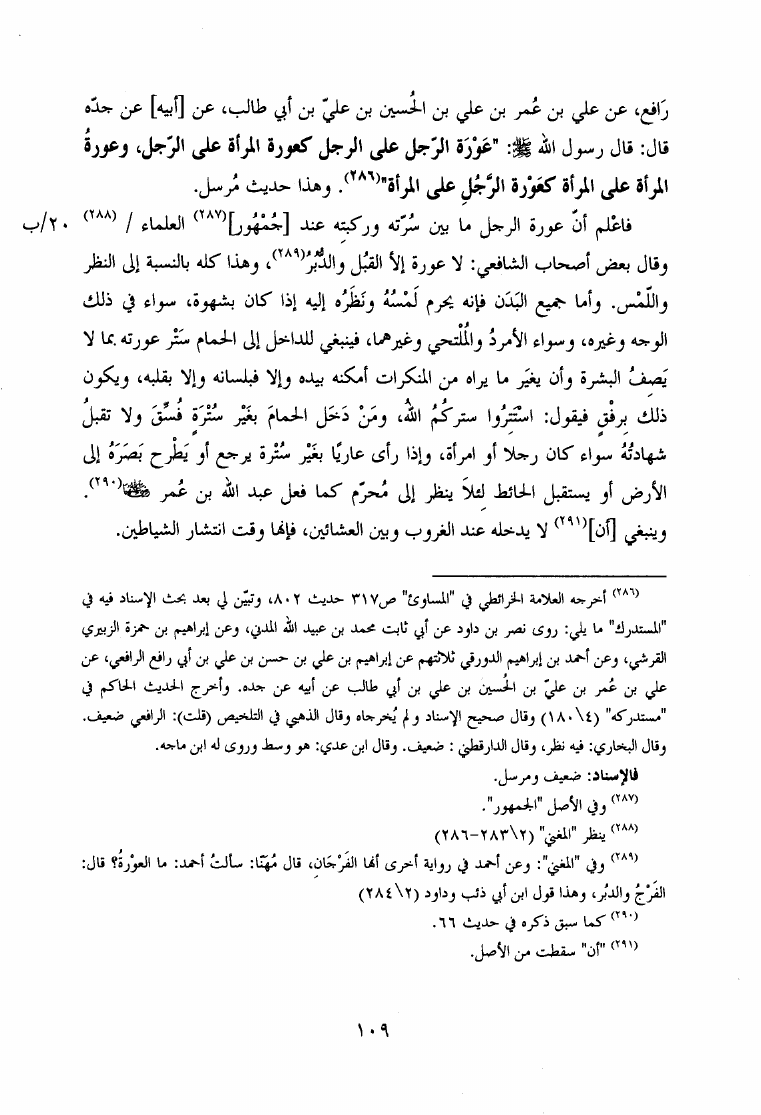 رَافع، عن علي بن عُمر بن علي بن الحُسين بن عليّ بن أبي طالب، عن [أبيه] عن جدّه
قال: قال رسول الله ﷺ: "عَوْرَة الرّجل على الرجل كعورة المرأة على الرّجل، وعورةُ
المرأة على المرأة كعَوْرَة الرَّجُلِ على المرأة"(٢٨٦). وهذا حديث مُرسل.
فاعْلم أنّ عورة الرجل ما بين سُرّته وركبتِه عند [جُمْهُور](٢٨٧) العلماء / (٢٨٨) ٢٠/ب
وقال بعض أصحاب الشافعي: لا عورة إلاّ القبُل والدُّبُرُ(٢٨٩)، وهذا كله بالنسبة إلى النظر
واللّمْس. وأما جميع البَدَن فإنه يحرم لَمْسُهُ ونَظَرُه إليه إذا كان بشهوة، سواء في ذلك
الوجه وغيره، وسواء الأمردُ والمُلْتحي وغيرهما، فينبغي للداخل إلى الحمام سَتْر عورته بما لا
يَصِفُ البشرة وأن يغيَر ما يراه من المنكرات أمكنه بيده وإلا فبلسانه وإلا بقلبه، ويكون
ذلك بِرفْقٍ فيقول: اسْتَتِرُوا ستركُمُ اللهُ، ومَنْ دَخَل الحمامَ بغَيْر سُتْرَةٍ فُسِّقَ ولا تقبلُ
شهادتُهُ سواء كان رجلا أو امرأة، وإذا رأى عاريًا بغَيْر سُتْرة يرجع أو يَطْرح بَصَرَهُ إلى
الأرض أو يستقبل الحائط لِئلاَ ينظر إلى مُحرّم كما فعل عبد الله بن عُمر ﷺ(٢٩٠).
وينبغي [أن](٢٩١) لا يدخله عند الغروب وبين العشائين، فإنها وقت انتشار الشياطين.
(٢٨٦) أخرجه العلامة الخرائطي في "المساوئ" ص٣١٧ حديث ٨٠٢، وتبيّن لي بعد بحث الإسناد فيه في
"المستدرك" ما يلي: روى نصر بن داود عن أبي ثابت محمد بن عبيد الله المدني، وعن إبراهيم بن حمزة الزبيري
القرشي، وعن أحمد بن إبراهيم الدورقي ثلاثتهم عن إبراهيم بن علي بن حسن بن علي بن أبي رافع الرافعي، عن
علي بن عُمر بن عليّ بن الحُسين بن علي بن أبي طالب عن أبيه عن جده. وأخرج الحديث الحاكم في
"مستدركه" (٤\١٨٠) وقال صحيح الإسناد و لم يُخرجاه وقال الذهبي في التلخيص (قلت): الرافعي ضعيف.
وقال البخاري: فيه نظر، وقال الدارقطني : ضعيف. وقال ابن عدي: هو وسط وروى له ابن ماجه.
فالإسناد: ضعيف ومرسل.
(٢٨٧) وفي الأصل "الجمهور".
(٢٨٨) ينظر "المغني" (٢\٢٨٣-٢٨٦)
(٢٨٩) وفي "المغني": وعن أحمد في رواية أخرى أنها الفَرْجَانِ، قال مُهَنَّا: سألتُ أحمد: ما العوْرةُ؟ قال:
الفَرْجُ والدبُر، وهذا قول ابن أبي ذئب وداود (٢\٢٨٤)
(٢٩٠) كما سبق ذكره في حديث ٦٦.
(٢٩١) "أن" سقطت من الأصل.
١٠٩